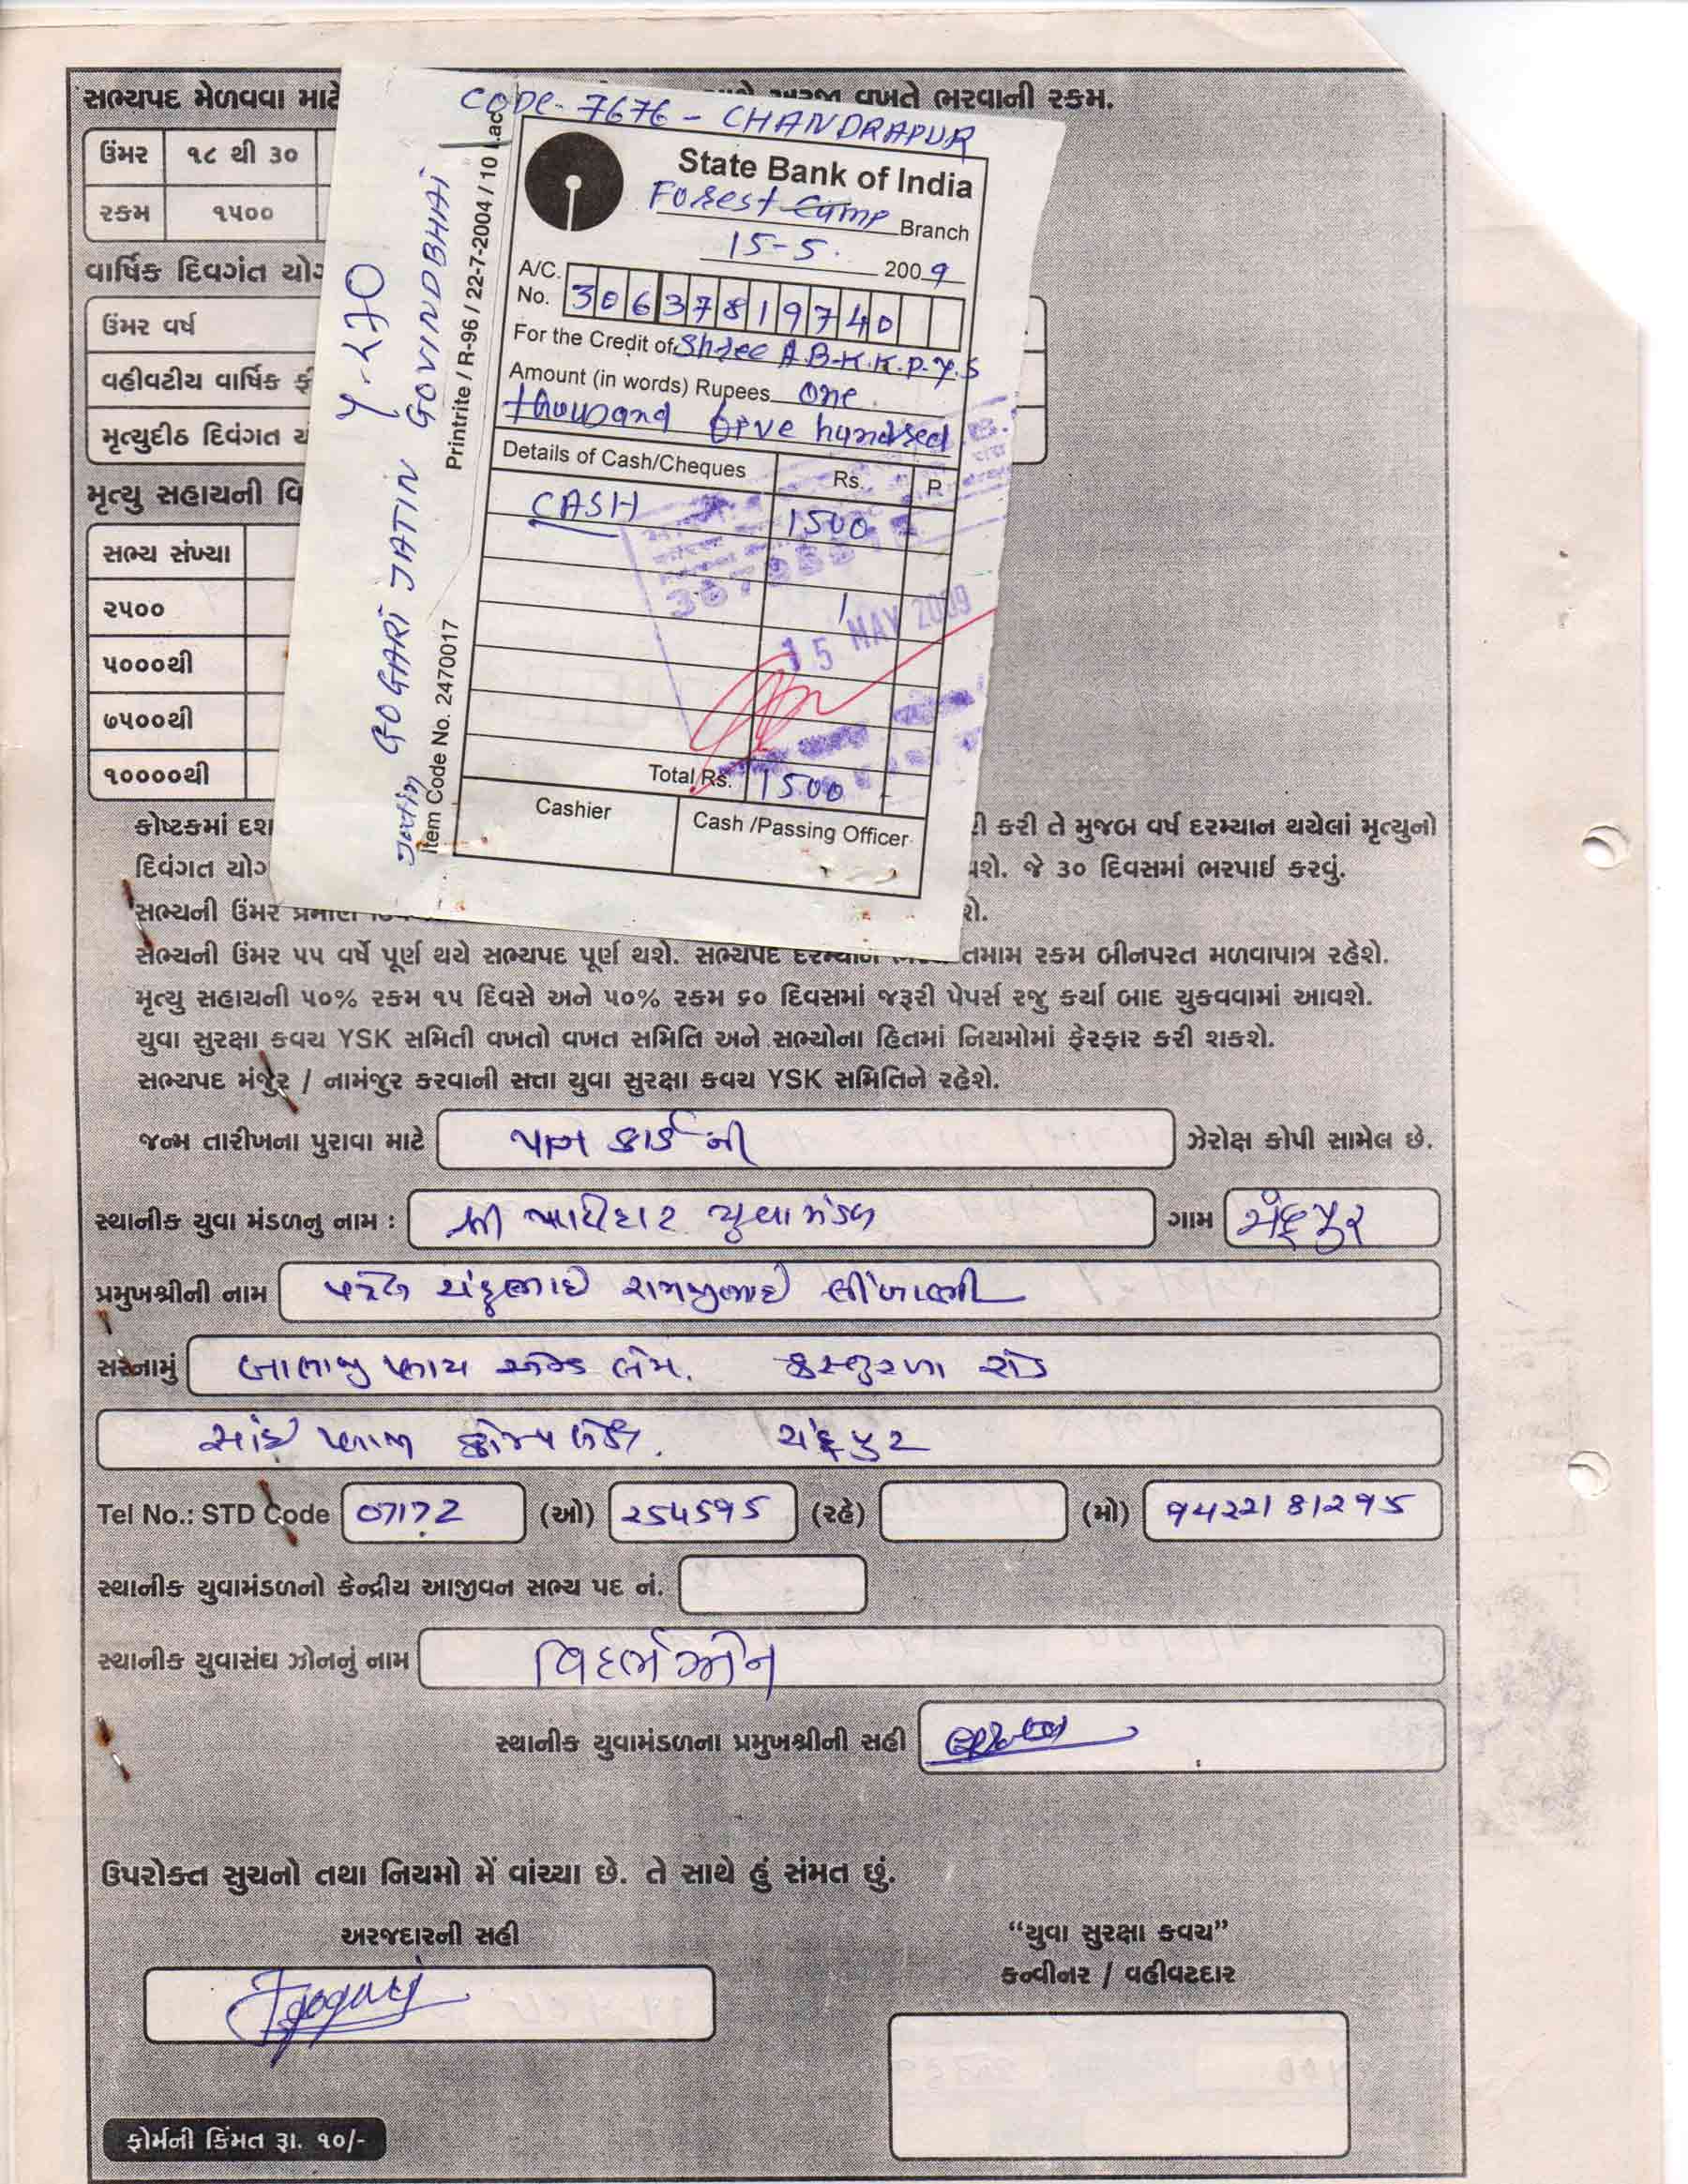 સભ્યપદ મેળવવા માટે
વખતે ભરવાની રકમ.
ઉંમર ૧૮ થી ૩૦
રકમ ૧૫૦૦
વાર્ષિક દિવગંત
ઉંમર વર્ષ
વહીવટીય વાર્ષિક
મૃત્યુદીઠ દિવંગત
મૃત્યુ સહાયની
સભ્ય સંખ્યા
૨૫૦૦
૫૦૦૦થી
૭૫૦૦થી
૧૦૦૦૦થી
CODE- 7676 - CHANDRAPUR
State Bank of India
Forest Branch
15-5. 2009
A/C. No. 30637819740
For the Credit of Shree A.B.K.K.P.Y.S
Amount (in words) Rupees One
thousand five hundred
Details of Cash/Cheques Rs. P.
CASH 1500
15 MAY 2009
Total Rs. 1500
Cashier Cash /Passing Officer
Y-270
GOGARI JATIN GOVINDBHAI
Printrite / R-96 / 22-7-2004 / 10
Item Code No. 2470017
કોષ્ટકમાં
કરી તે મુજબ વર્ષ દરમ્યાન થયેલાં મૃત્યુનો
દિવંગત
જે ૩૦ દિવસમાં ભરપાઈ કરવું.
સભ્યની ઉંમર
સભ્યની ઉંમર ૫૫ વર્ષે પૂર્ણ થયે સભ્યપદ પૂર્ણ થશે. સભ્યપદ દરમ્યાન તમામ રકમ બીનપરત મળવાપાત્ર રહેશે.
મૃત્યુ સહાયની ૫૦% રકમ ૧૫ દિવસે અને ૫૦% રકમ ૬૦ દિવસમાં જરૂરી પેપર્સ રજુ કર્યા બાદ ચુકવવામાં આવશે.
યુવા સુરક્ષા કવચ YSK સમિતી વખતો વખત સમિતિ અને સભ્યોના હિતમાં નિયમોમાં ફેરફાર કરી શકશે.
સભ્યપદ મંજુર / નામંજુર કરવાની સત્તા યુવા સુરક્ષા કવચ YSK સમિતિને રહેશે.
જન્મ તારીખના પુરાવા માટે પાન કાર્ડ ની ઝેરોક્ષ કોપી સામેલ છે.
સ્થાનીક યુવા મંડળનુ નામ : શ્રી પાટીદાર યુવા મંડળ ગામ ચંદ્રપુર
પ્રમુખશ્રીની નામ પટેલ ચંદુભાઈ રામજીભાઈ લીંબાણી
સરનામું બાલાજી પ્લાય એન્ડ લેમ. કસ્તુરબા રોડ
સાંઈ પ્લાઝા કોમ્પલેક્ષ. ચંદ્રપુર
Tel No.: STD Code 07172 (ઓ) ૨૫૪૫૯૫ (રહે) (મો) ૯૪૨૨૧ ૮૧૨૯૫
સ્થાનીક યુવામંડળનો કેન્દ્રીય આજીવન સભ્ય પદ નં.
સ્થાનીક યુવાસંઘ ઝોનનું નામ વિદર્ભ ઝોન
સ્થાનીક યુવામંડળના પ્રમુખશ્રીની સહી
ઉપરોક્ત સુચનો તથા નિયમો મેં વાંચ્યા છે. તે સાથે હું સંમત છું.
અરજદારની સહી
Jgogari
“યુવા સુરક્ષા કવચ”
કન્વીનર / વહીવટદાર
ફોર્મની કિંમત રૂા. ૧૦/-